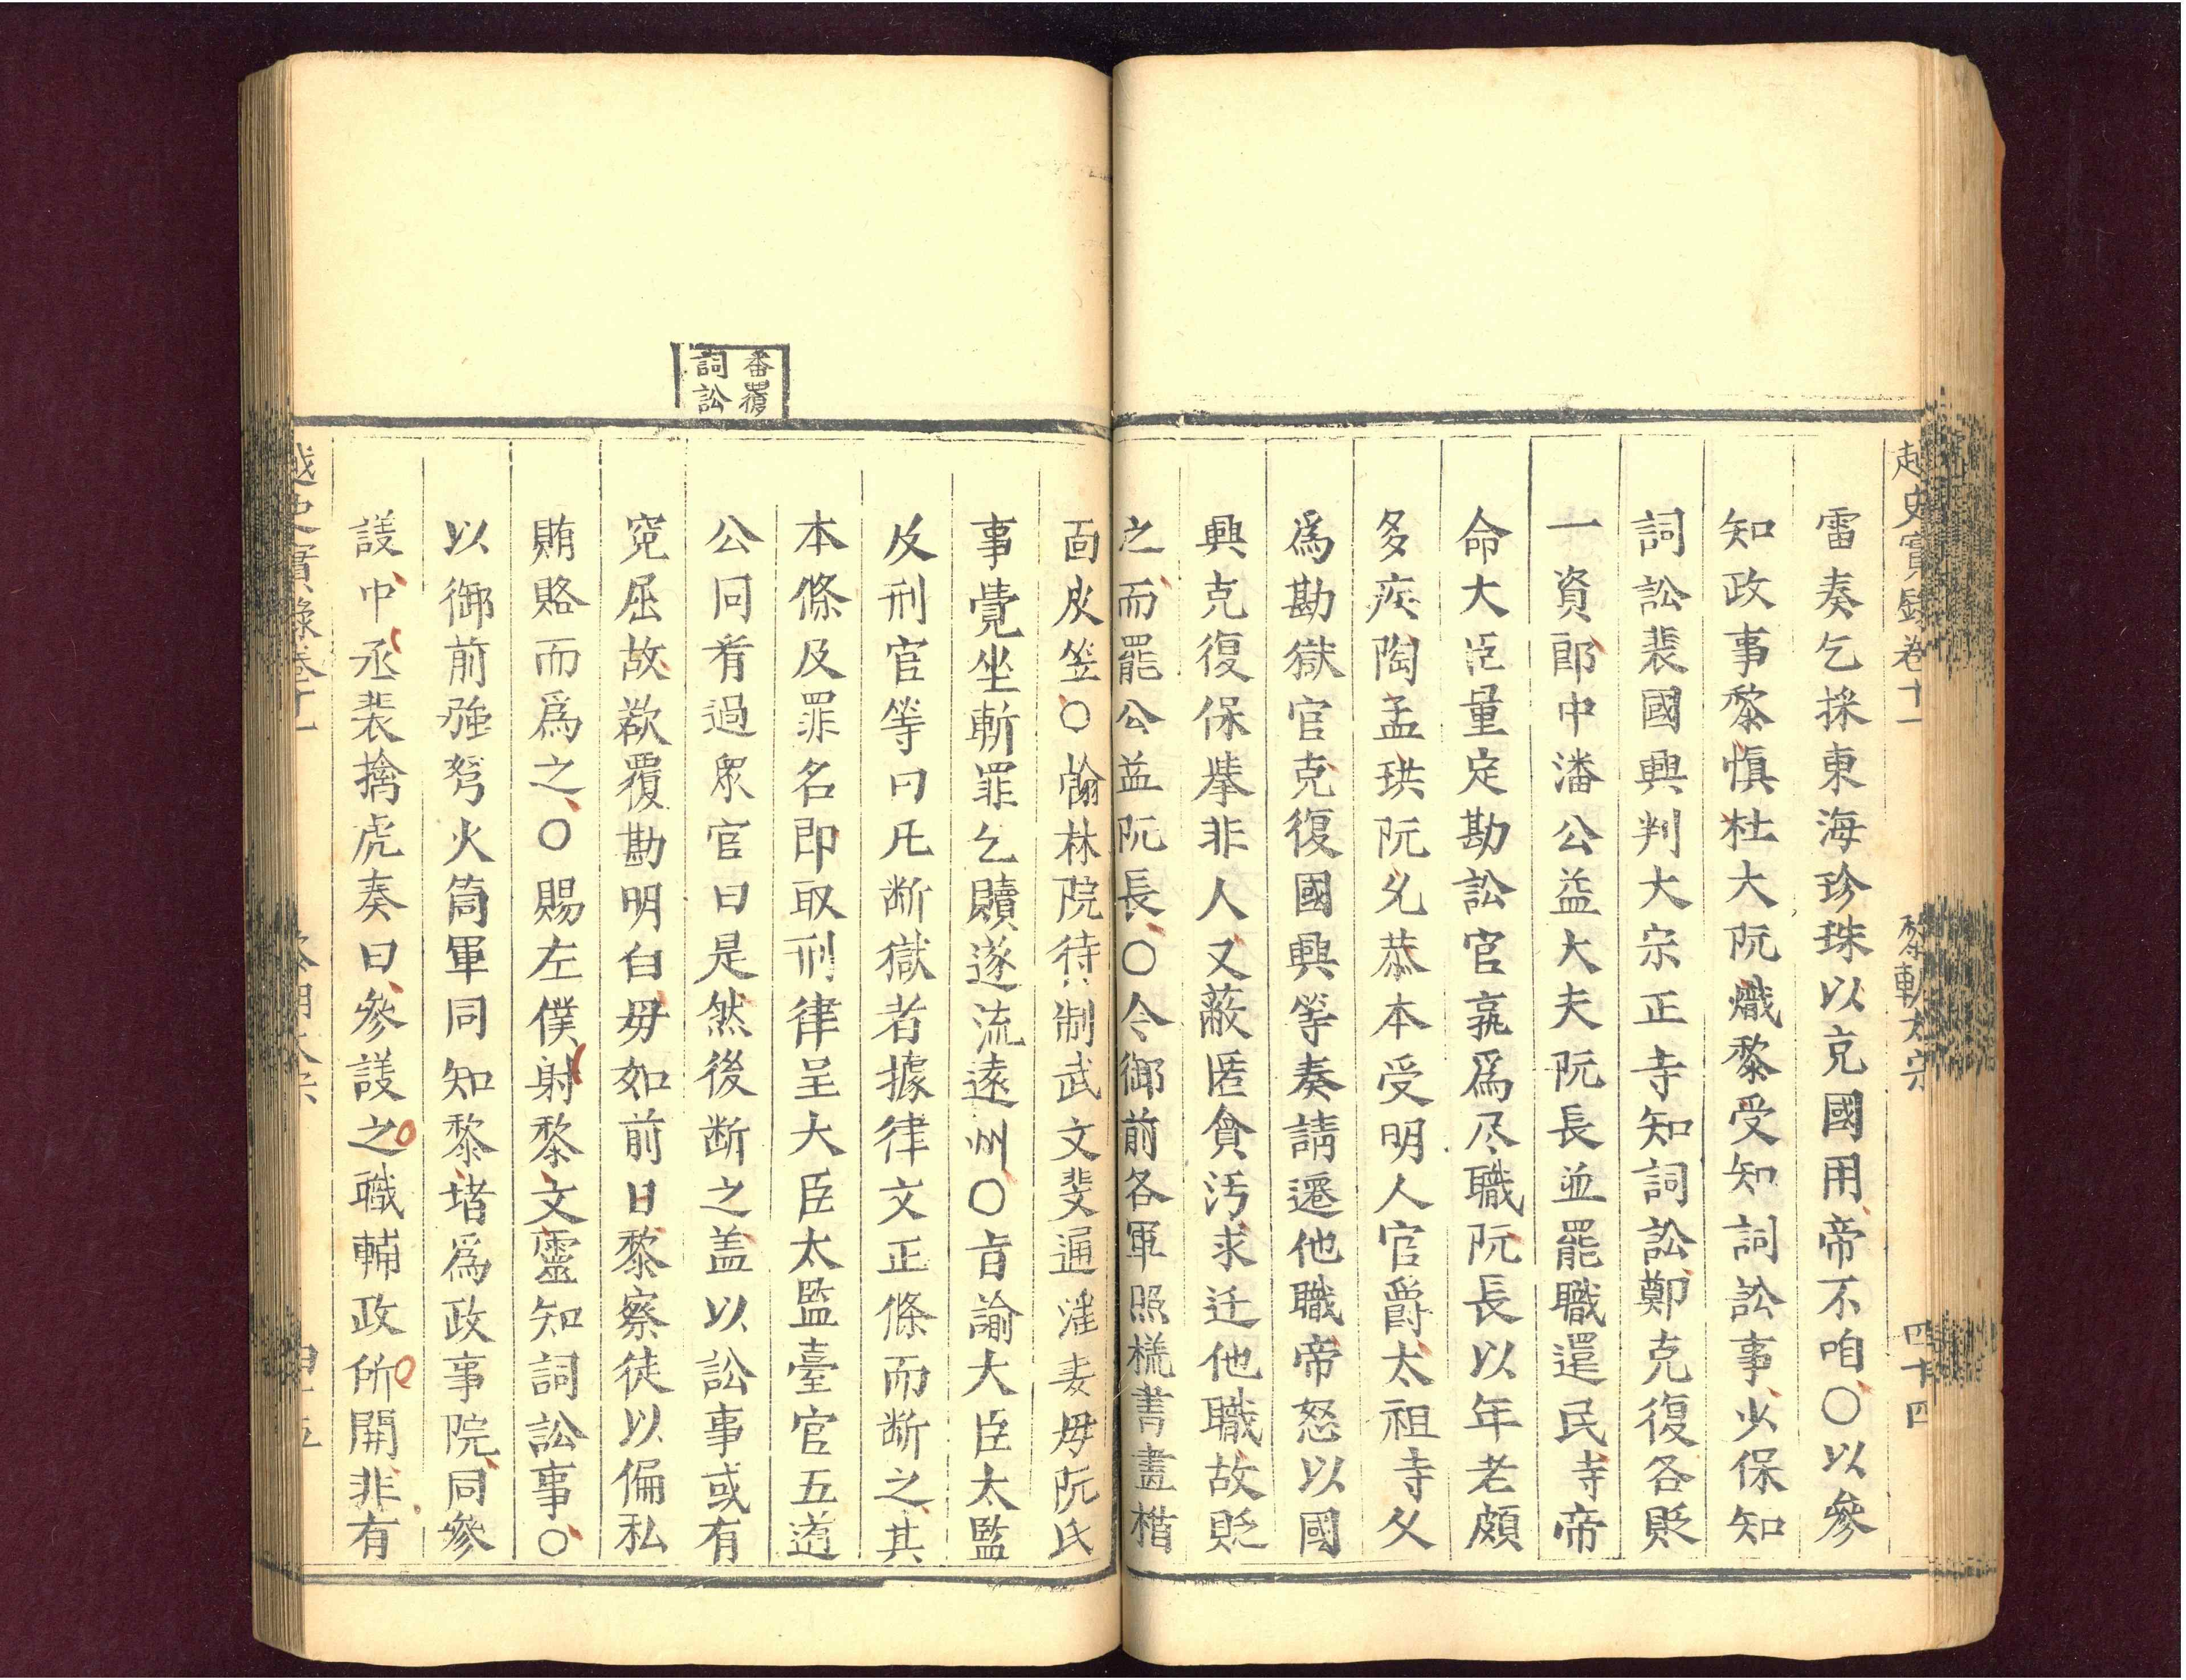 越史實錄卷十一 黎朝太宗 四十四
雷奏乞採東海珍珠以克國用帝不咱○以參
知政事黎慎杜大阮熾黎受知詞訟事火保知
詞訟裴國興判大宗正寺知詞訟鄭克復各貶
一資郎中潘公益大夫阮長並罷職還民寺帝
命大臣量定勘訟官孰爲尽職阮長以年老頗
多疾陶孟珙阮允恭本受明人官爵太祖寺父
爲勘獄官克復國興等奏請遷他職帝怒以國
興克復保舉非人又蔽匿貪污求迁他職故貶
之而罷公益阮長○令御前各軍照樣書畫楷
面皮笠○翰林院待制武文斐通滛妻毋阮氏
事覺坐斬罪乞贖遂流遠州○旨諭大臣太監
及刑官等曰凡断獄者據律文正條而断之其
本條及罪名即取刑律呈大臣太監臺官五道
公同肴過衆官曰是然後断之盖以訟事或有
寃屈故欲覆勘明白毋如前日黎察徒以偏私
賄賂而爲之○賜左僕射黎文靈知詞訟事○
以御前強弩火筒軍同知黎堵爲政事院同參
議中丞裴擒虎奏曰參議之職輔政所關非有
番覆
詞訟
越史實錄卷十一